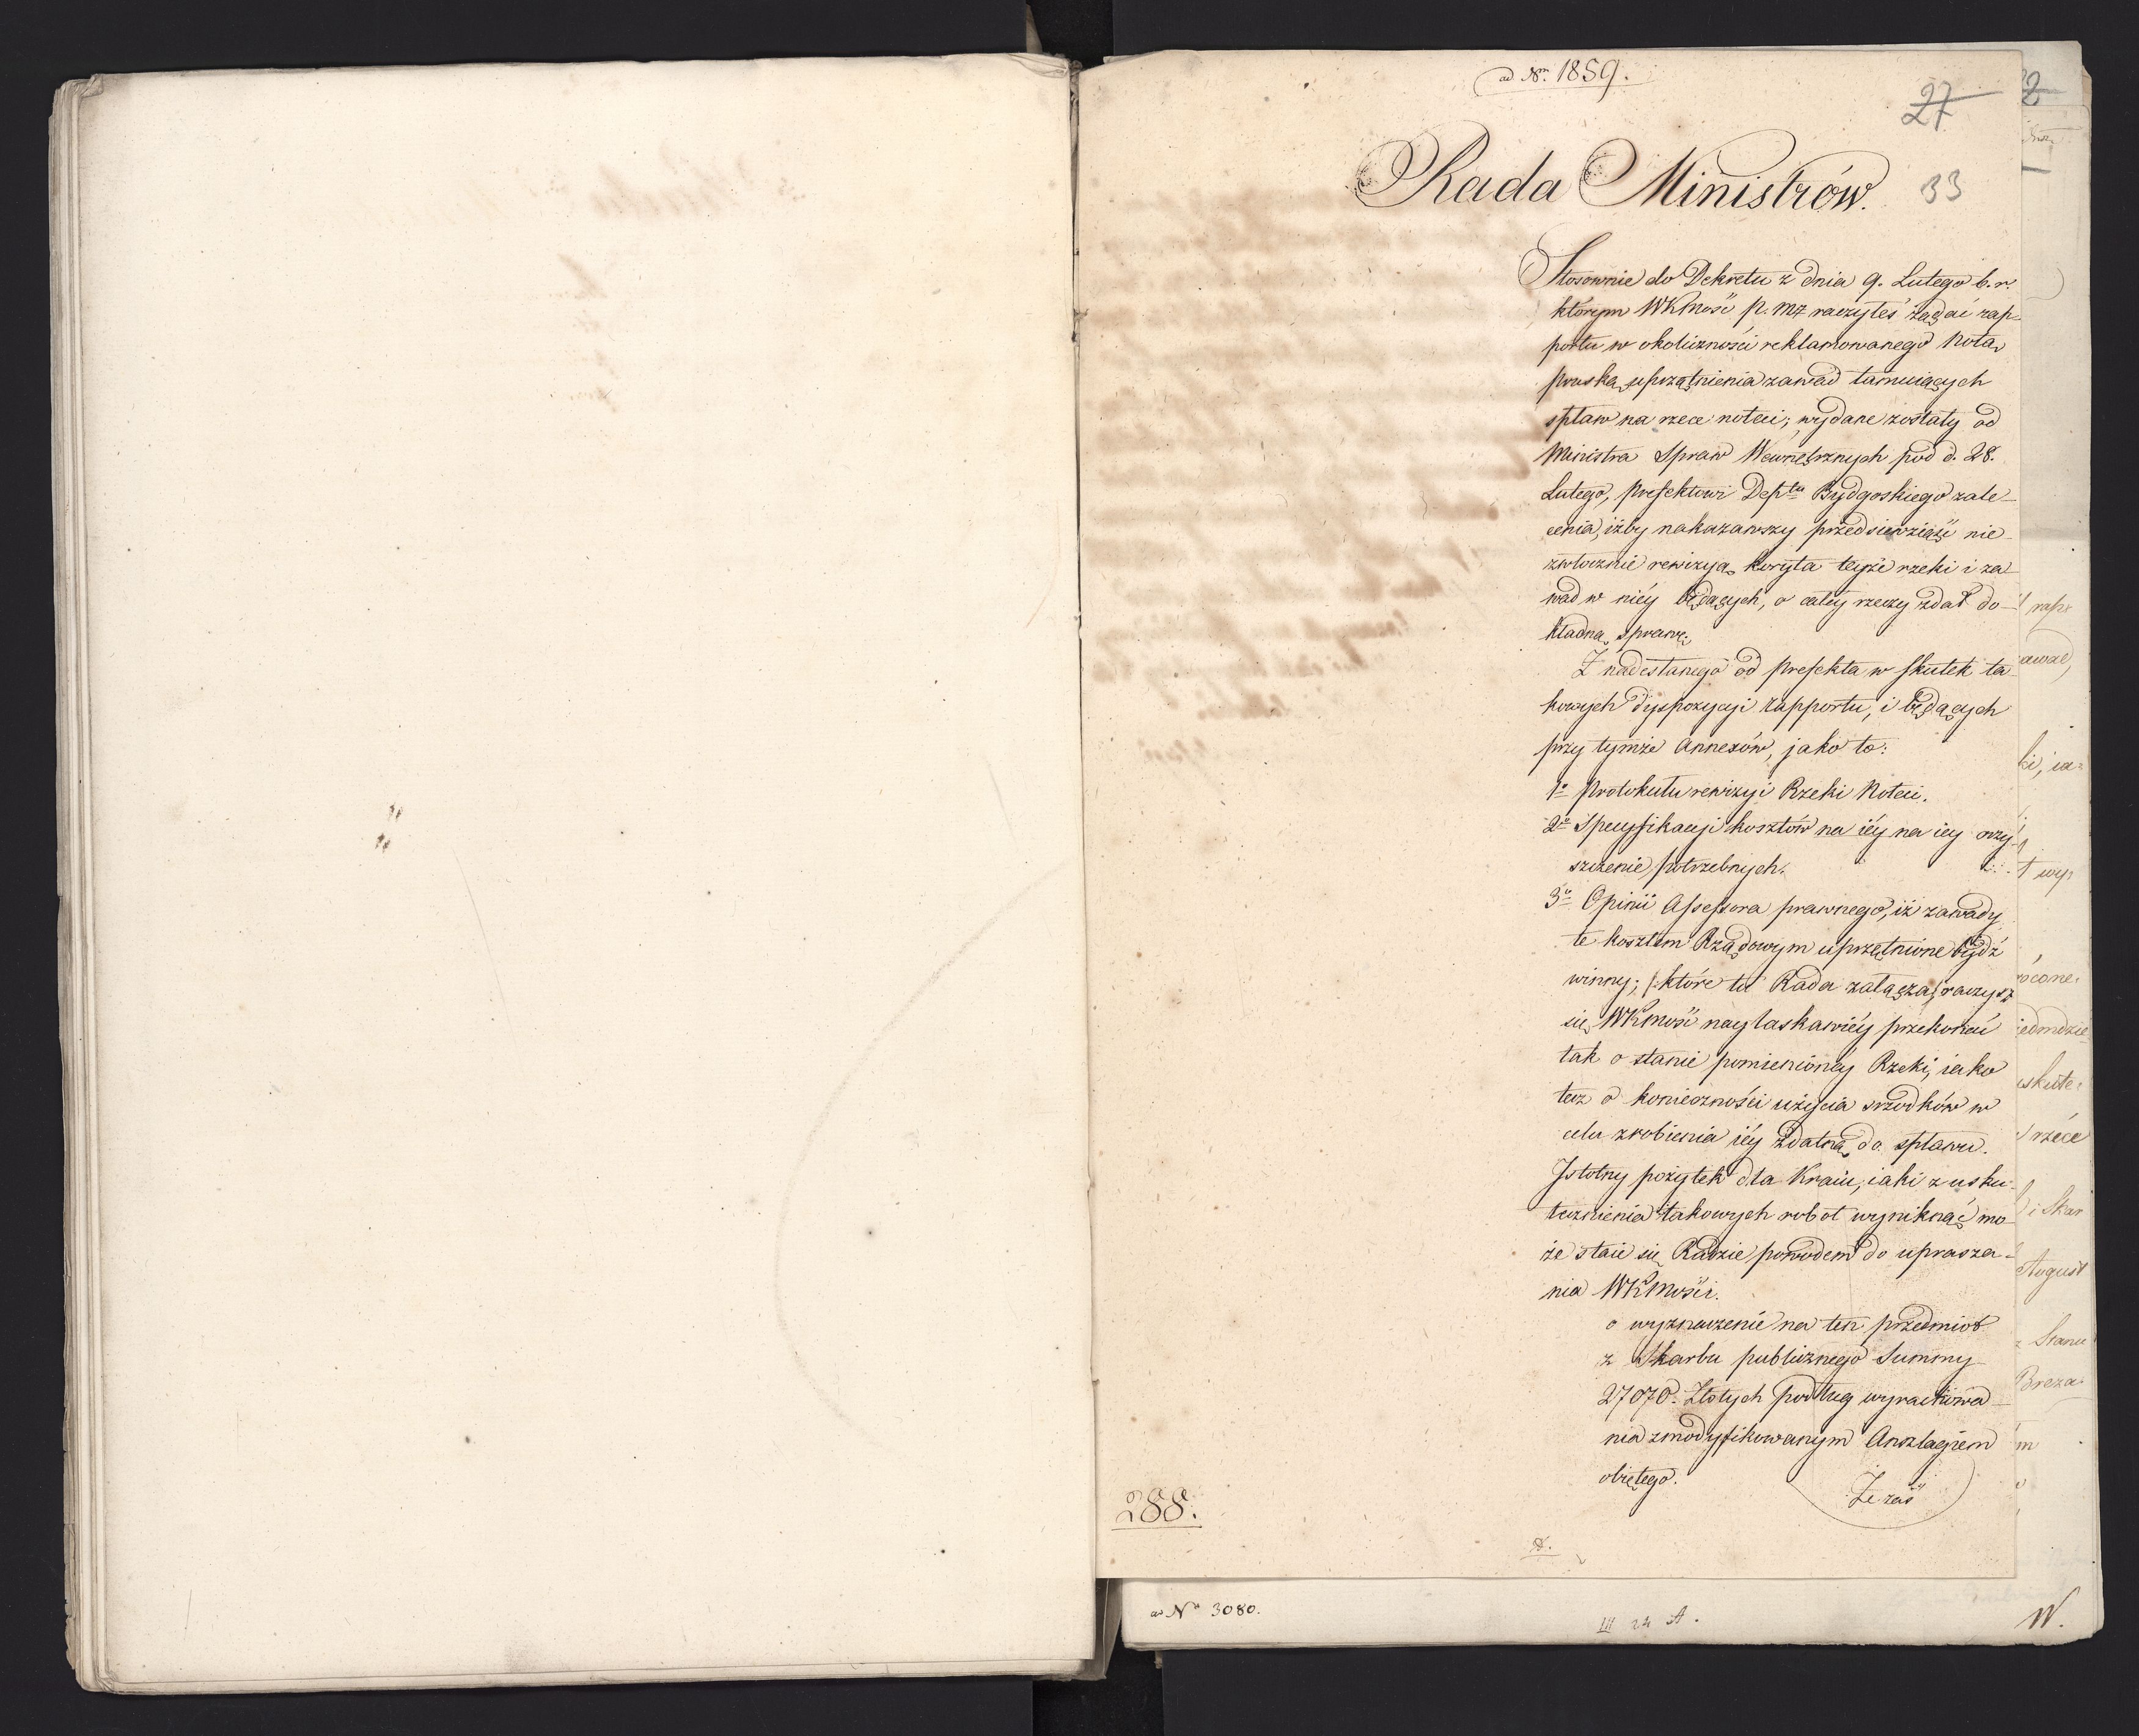 ad Nr. 1859.
27
33
Rada Ministrów.
Stosownie do Dekretu z dnia 9. Lutego b. r.
którym WKMość p. m. raczyłeś żądać rap-
portu w okoliczności reklamowanego Notą
pruską uprzątnienia zawad tamuiących
spław na rzece noteci; wydane zostały od
Ministra Spraw Wewnętrznych pod d. 28.
Lutego, Prefektowi Deptu Bydgoskiego zale-
cenia, iżby nakazawszy przedsiewziąść nie-
zwłocznie rewizyą koryta teyże rzeki i za-
wad w niéy będących, o całéy rzeczy zdał do-
kładną sprawę.
Z nadesłanego od prefekta w skutek ta-
kowych dyspozycyi rapportu, i będących
przy tymże Annexów, jako to:
1o Protokułu rewizyi Rzeki Noteci.
2o Specyfikacyi kosztów na iéy na iey oczy-
szczenie potrzebnych.
3o Opinii Assessora prawnego, iż zawady
te kosztem Rządowym uprzątnione bydź
winny; /: które tu Rada załącza :/ raczysz
się WKMość nayłaskawiéy przekonać
tak o stanie pomienionéy Rzeki, iako
też o konieczności użycia srzodków w
celu zrobienia iéy zdatną do spławu.
Istotny pożytek dla Kraiu, iaki z usku-
tecznienia takowych robot wyniknąć mo-
że staie się Radzie powodem do uprasza-
nia WKMości.
o wyznaczenie na ten przedmiot
z Skarbu publicznego Summy
27070. Złotych podług wyrachowa-
nia zmodyfikowanym Anszlagiem
obiętego.
Że zaś
288.
ad Nr 3080.
III 24 A.
W.
2
rap
awad,
ki, ia=
t wy=
rócone
iedmdzie
skute=
rzéce
i Skar
August
Stanu
Breza
m